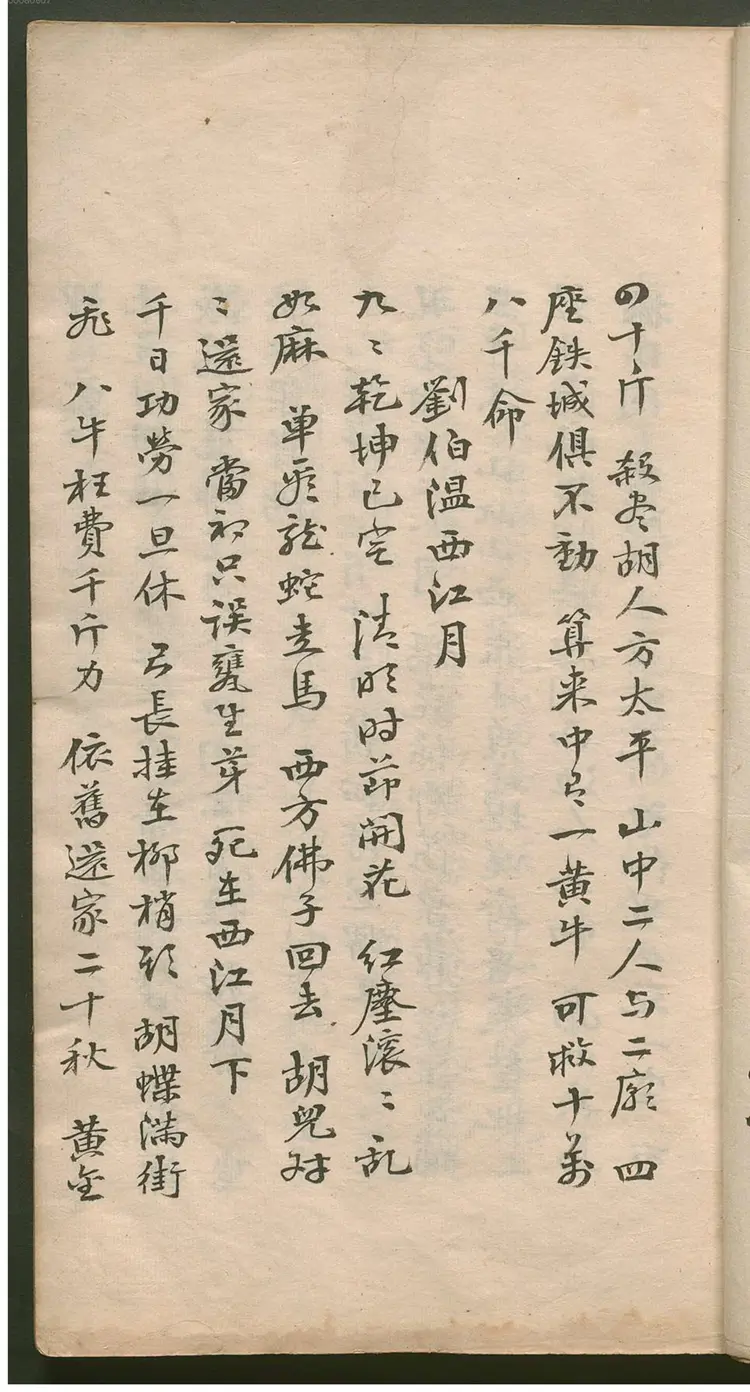 四十斤 殺尽胡人方太平 山中二人与二廟 四
座鉄城俱不動 算来中尽一黄牛 可救十萬
八千命
劉伯温西江月
九〻乾坤已定 清明时節開花 紅塵滾〻乱
如麻 单疋龍蛇走馬 西方佛子回去 胡兒对
〻還家 當初只誤甕生芽 死在西江月下
千日功勞一旦休 弓長挂在柳梢頭 胡蝶滿街
飛 八牛枉費千斤力 依舊還家二十秋 黄金